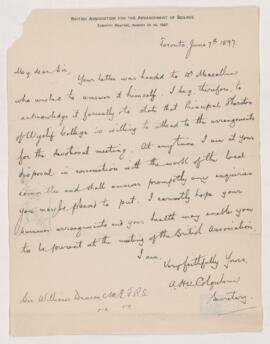 BRITISH ASSOCIATION FOR THE ADVANCEMENT OF SCIENCE
TORONTO MEETING, AUGUST 18-25, 1897
Toronto, June 7th 1897.
My dear Sir,
Your letter was handed to Dr Macallum
who wished to answer it himself. I beg, therefore, to
acknowledge it formally & to state that Principal Sheraton
of Wycliffe College is willing to attend to the arrangements
for the devotional meeting. At any time I am at your
disposal in connexion with the work of the local
committee and shall answer promptly any enquiries
you may be pleased to put. I earnestly hope your
summer arrangements and your health may enable you
to be present at the meeting of the British Association.
I am,
Very faithfully Yours,
Secretary.
Sir William Dawson C.M.G. F.R.S.